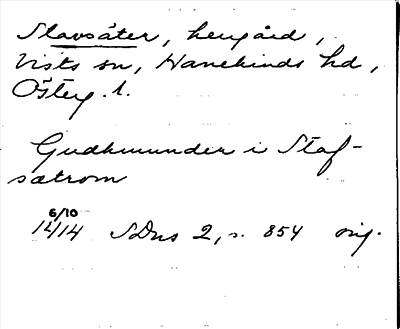 Slavsäter, herrgård,
Vists sn, Hanekinds hd,
Österg. l.
Gudhmunder i Staf-
sætrom
6/10
1414 SDns 2, s. 854 orig.